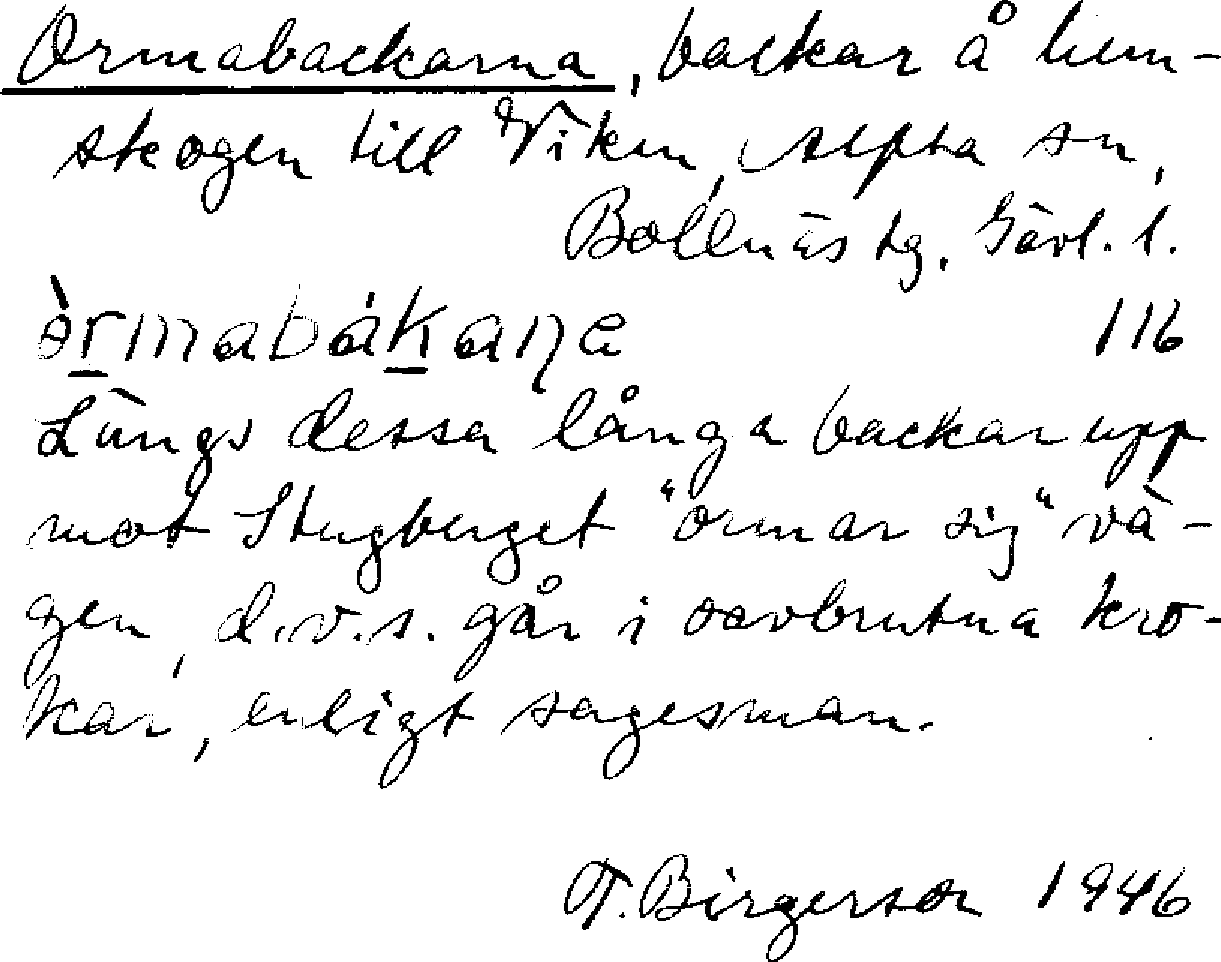 Ormabackarna, backar å hem-
skogen till Viken, Alfta sn,
Bollnäs tg. Gävl. l.
òrmabákaṇa 116
Längs dessa långa backar upp
mot Stugberget "ormar sig" vä-
gen, d.v.s. går i oavbrutna kro-
kar, enligt sagesman.
T. Birgerson 1946